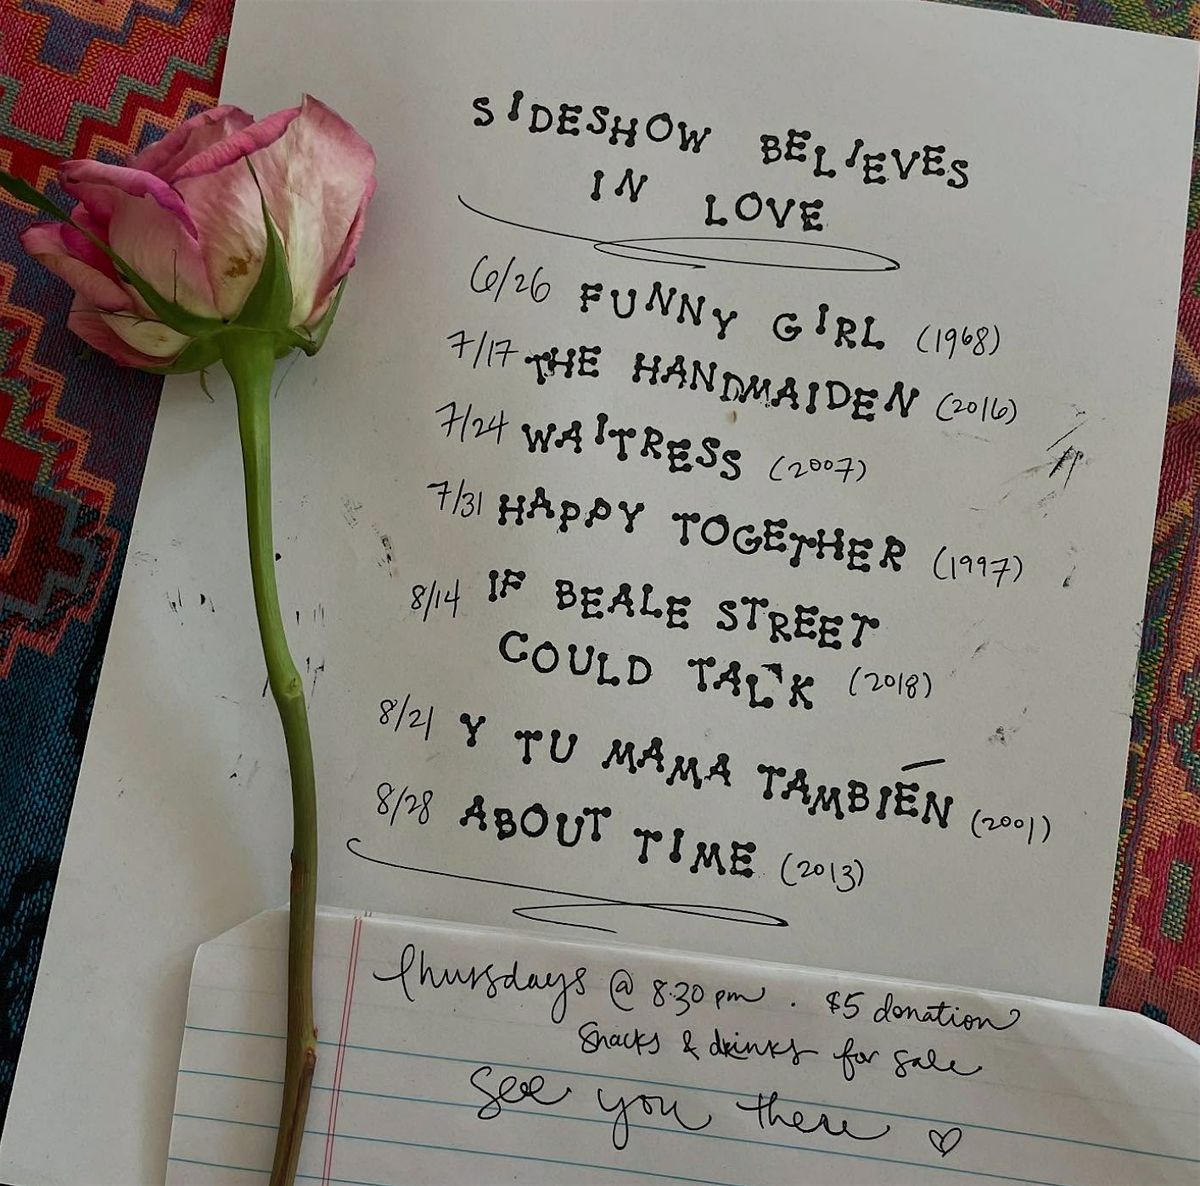 SIDESHOW BELIEVES
IN LOVE
6/26 FUNNY GIRL (1968)
7/17 THE HANDMAIDEN (2016)
7/24 WAITRESS (2007)
7/31 HAPPY TOGETHER (1997)
8/14 IF BEALE STREET
COULD TALK (2018)
8/21 Y TU MAMA TAMBIÉN (2001)
8/28 ABOUT TIME (2013)
Thursdays @ 8:30 pm . $5 donation
Snacks & drinks for sale
See you there ♡